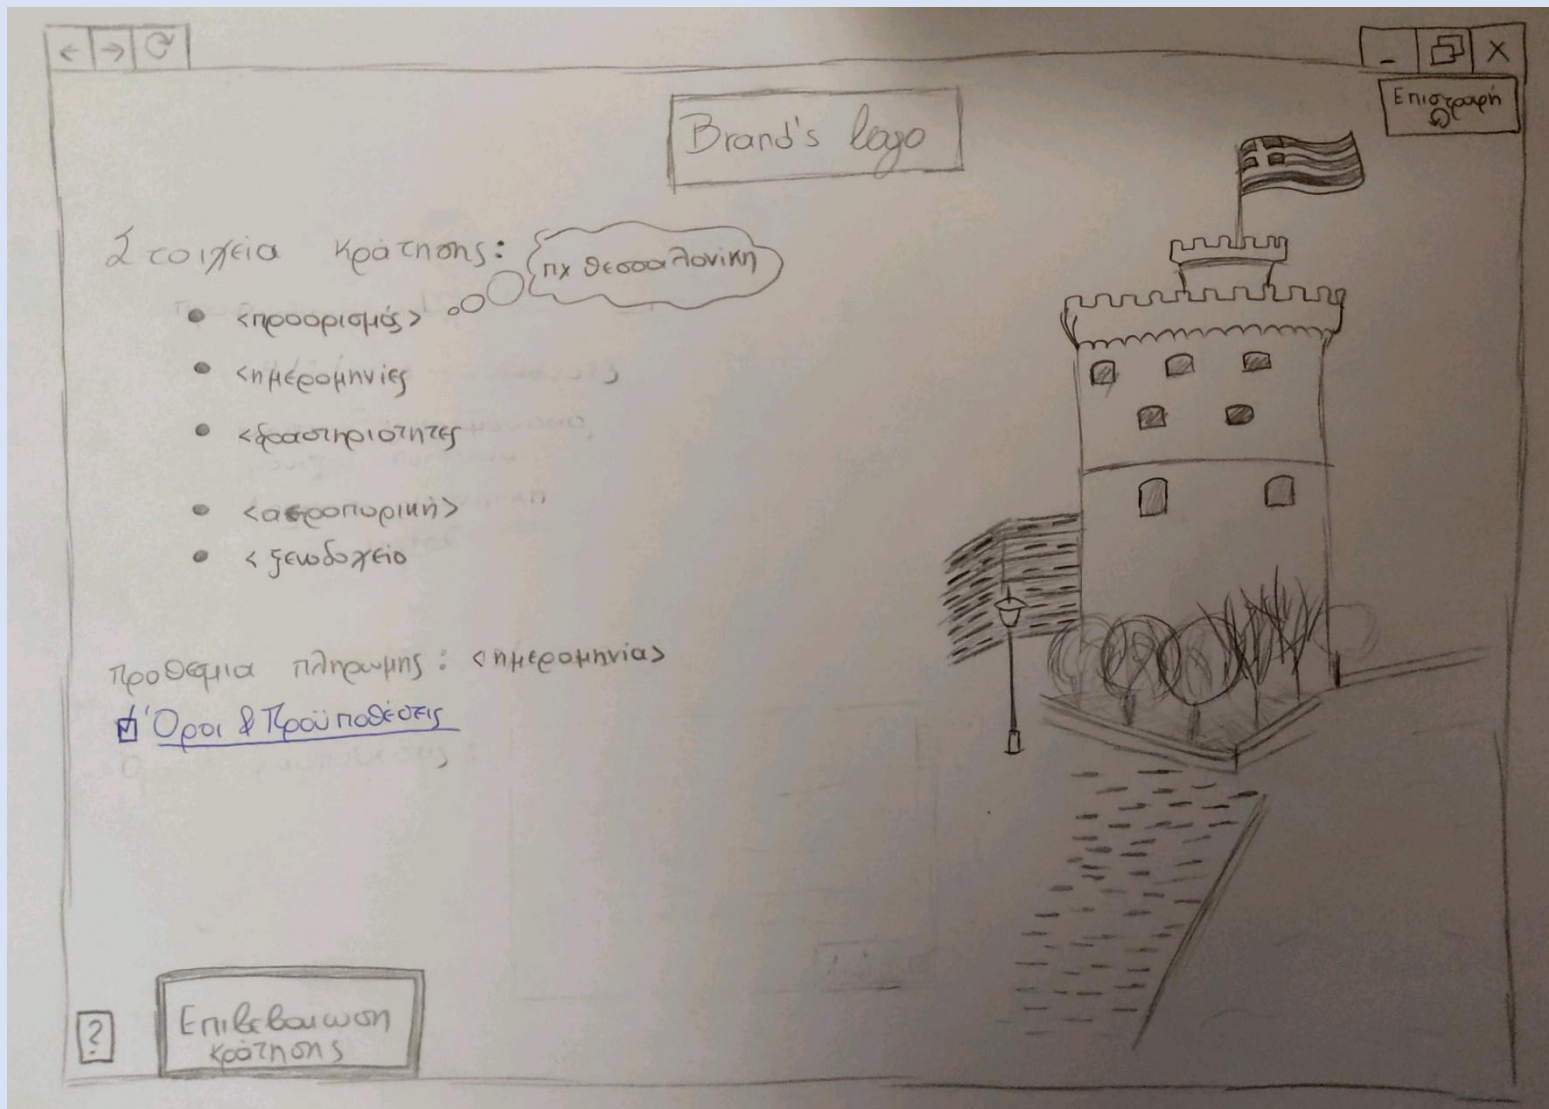 Επιστροφή
Brand's logo
Στοιχεία κράτησης:
πχ Θεσσαλονίκη
<προορισμός>
<ημερομηνίες
<δραστηριότητες
<αεροπορική>
< ξενοδοχείο
Προθεσμία πληρωμής: <ημερομηνία>
Όροι & Προϋποθέσεις
?
Επιβεβαίωση
κράτησης